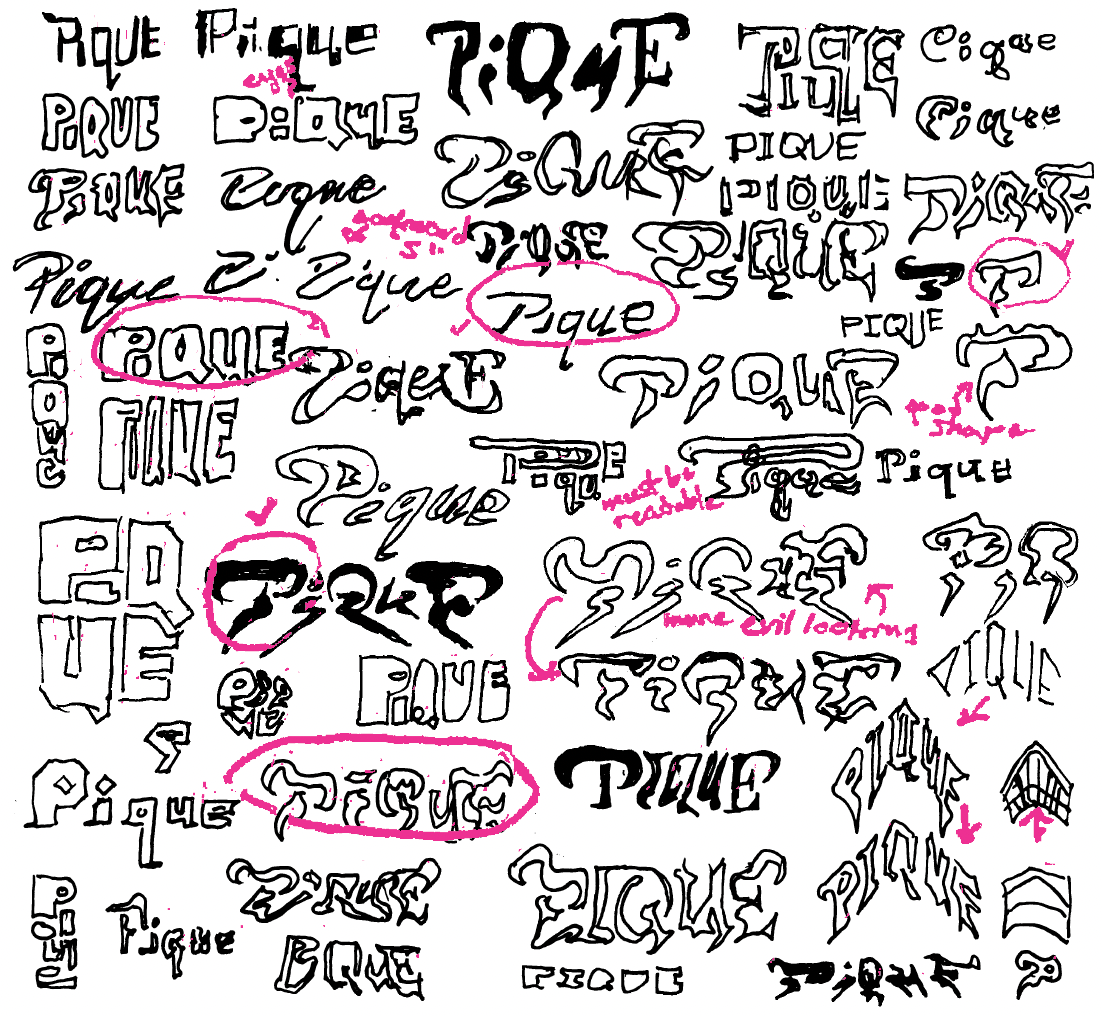 PIQUE Pique PIQUE PIQUE Pique
PIQUE PIQUE PIQUE PIQUE Pique
PIQUE Pique PIQUE PIQUE
Pique Pique PIQUE PIQUE P
PIQUE Pique PIQUE
PIQUE PIQUE PIQUE PIQUE P
shape
Pique Pique Pique Pique
must be
readable
PIQUE PIQUE PIQUE
more evil looking
PIQUE PIQUE PIQUE PIQUE
Pique PIQUE PIQUE PIQUE
PIQUE Pique PIQUE PIQUE PIQUE
PIQUE PIQUE PIQUE